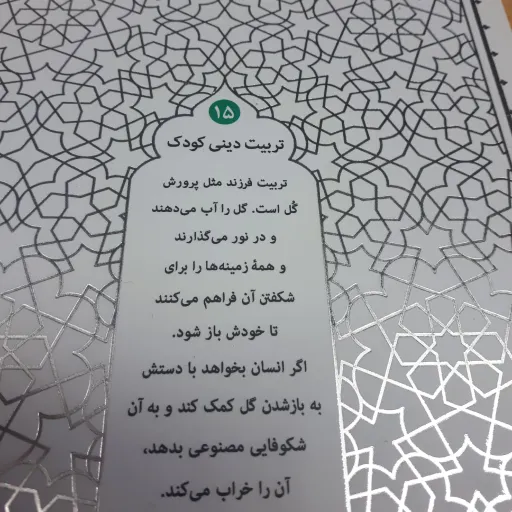 ۱۵
تربیت دینی کودک
تربیت فرزند مثل پرورش
گُل است. گل را آب می‌دهند
و در نور می‌گذارند
و همهٔ زمینه‌ها را برای
شکفتن آن فراهم می‌کنند
تا خودش باز شود.
اگر انسان بخواهد با دستش
به بازشدن گل کمک کند و به آن
شکوفایی مصنوعی بدهد،
آن را خراب می‌کند.